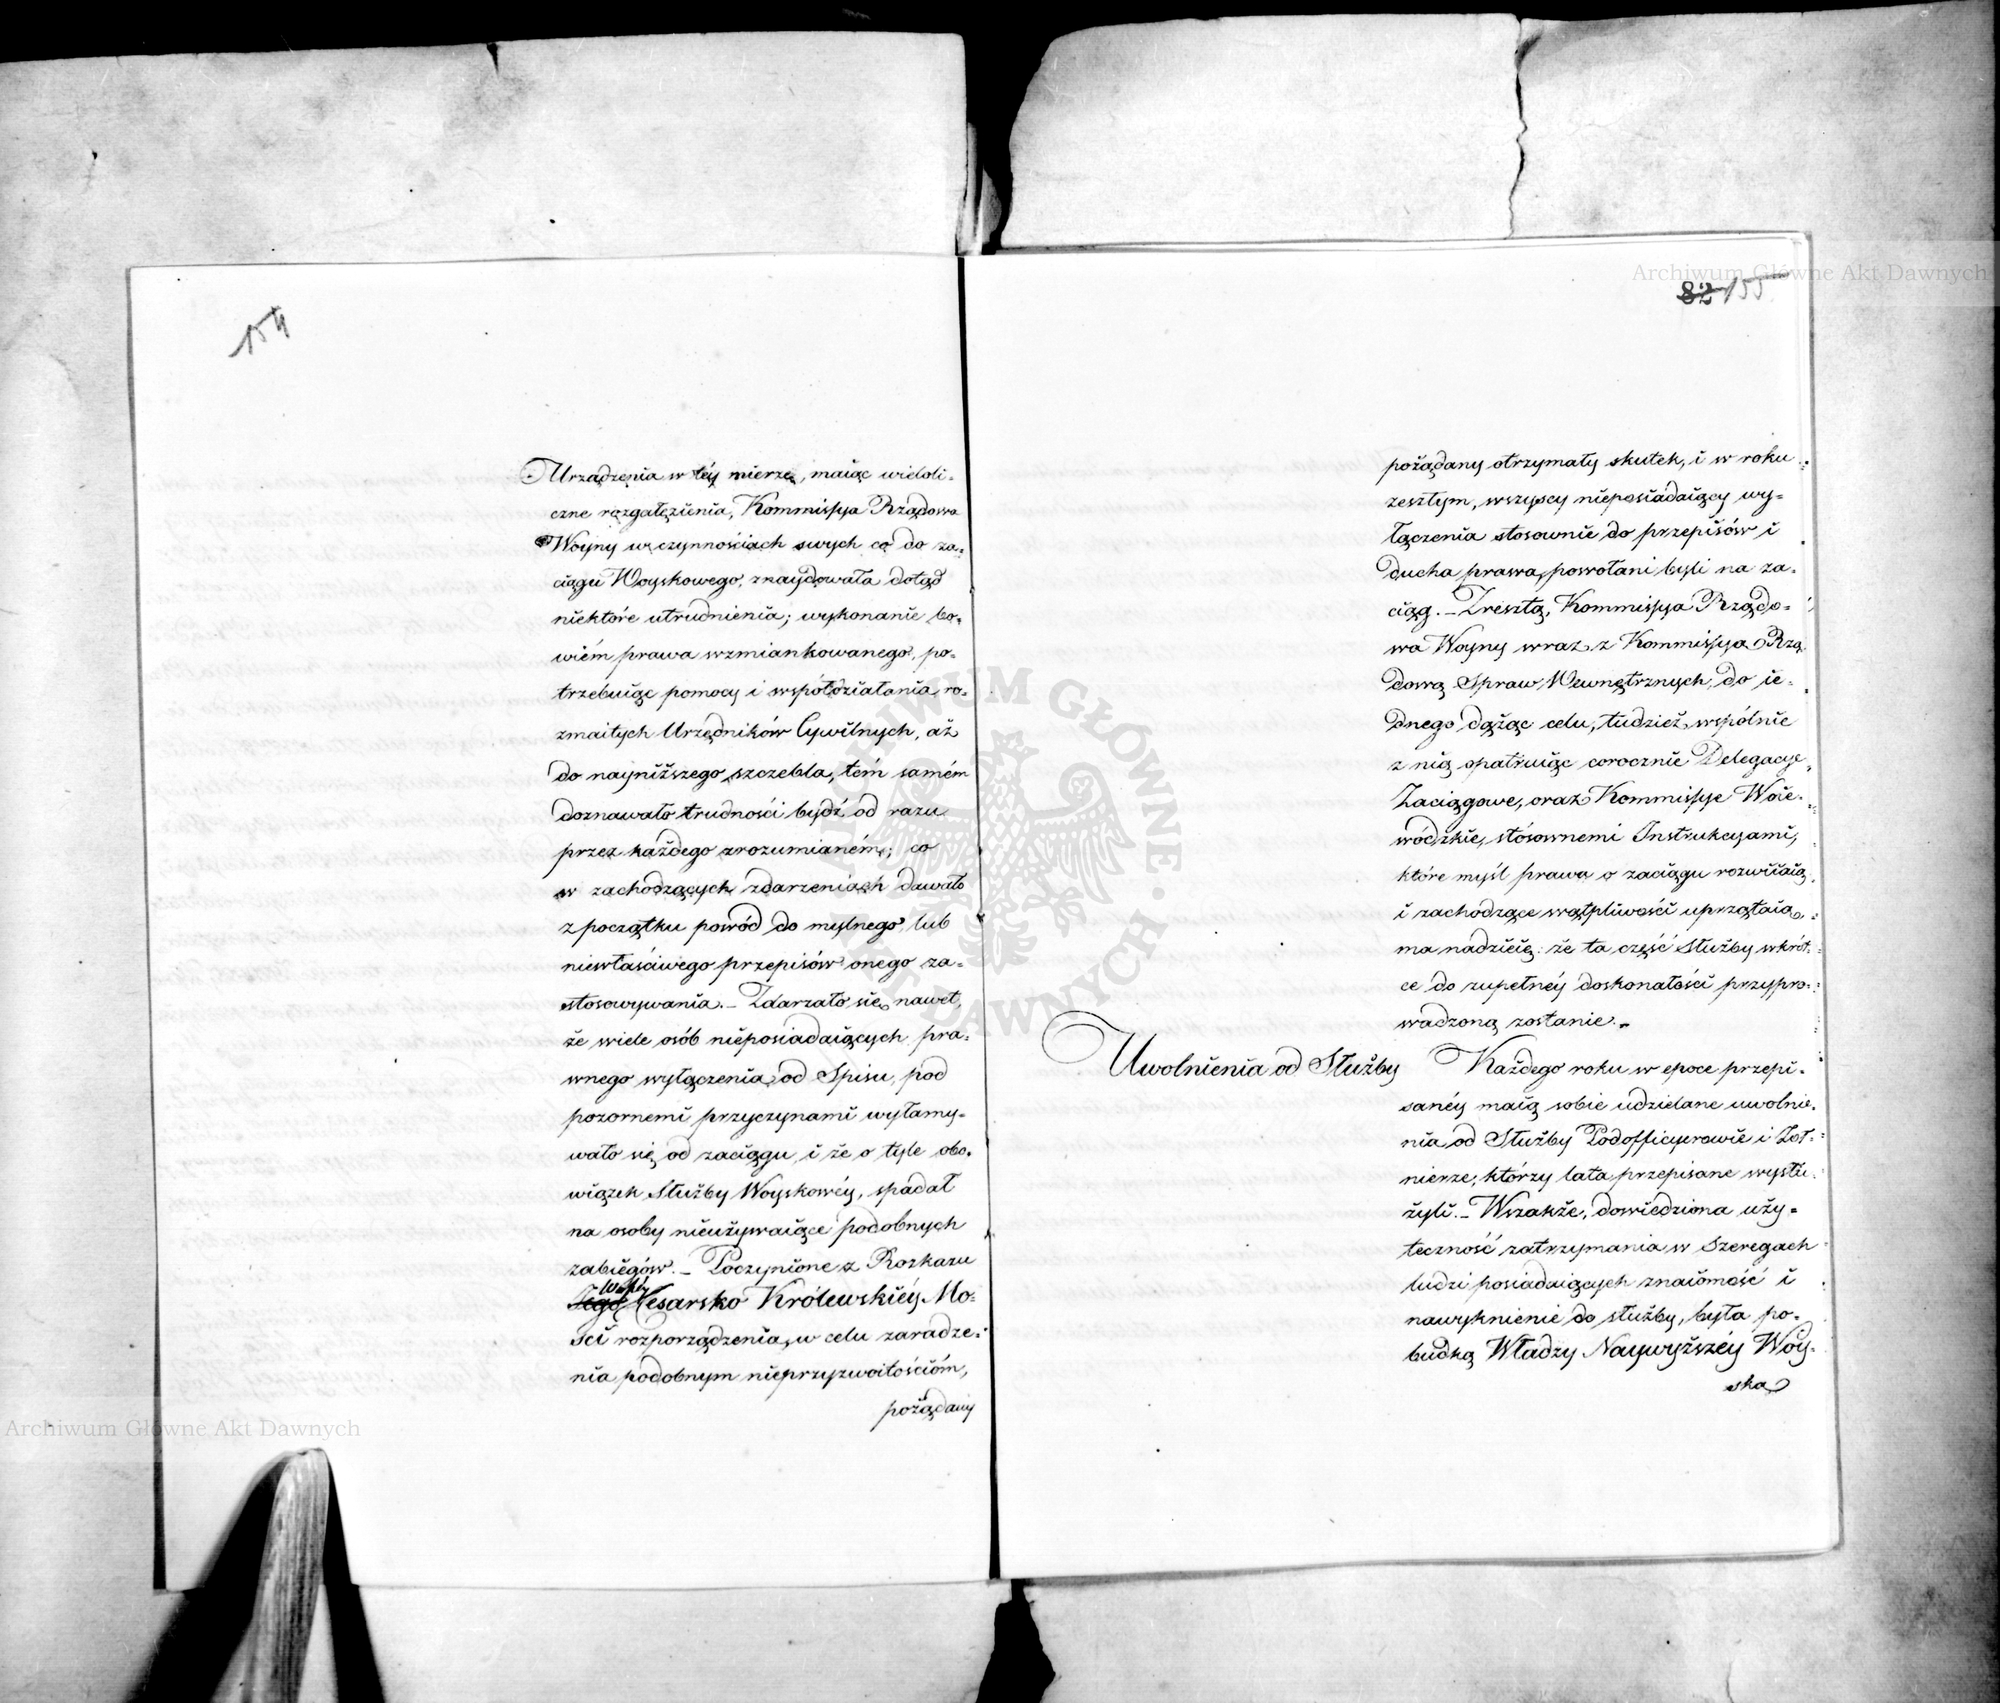 154
Urządzenia w téy mierze, maiąc wieloli-
czne rozgałęzienia, Kommissya Rządowa
Woyny w czynnościach swych co do za-
ciągu Woyskowego, znaydowała dotąd
niektóre utrudnienia; wykonanie bo-
wiém prawa wzmiankowanego, po-
trzebuiąc pomocy i współdziałania ro-
zmaitych Urzędników Cywilnych, aż
do nayniższego szczebla, tém samém
doznawało trudności bydź od razu
przez każdego zrozumianém; co
w zachodzących zdarzeniach dawało
z początku powód do mylnego lub
niewłaściwego przepisów onego za-
stosowywania. _ Zdarzało się nawet,
że wiele osób nieposiadaiących pra-
wnego wyłączenia od Spisu, pod
pozornemi przyczynami wyłamy-
wało się od zaciągu, i że o tyle obo-
wiązek Służby Woyskowéy, spadał
na osoby nieużywaiące podobnych
zabiegów. _ Poczynione z Rozkazu
Jego Cesarsko Królewskiéy Mo-
ści rozporządzenia, w celu zaradze-
nia podobnym nieprzyzwoitościóm,
pożądany
82 155
pożądany otrzymały skutek, i w roku
zeszłym, wszyscy nieposiadaiący wy-
łączenia stosownie do przepisów i
ducha prawa, powołani byli na za-
ciąg. _ Zresztą, Kommissya Rządo-
wa Woyny wraz z Kommissyą Rzą-
dową Spraw Wewnętrznych, do ie-
dnego dążąc celu, tudzież wspólnie
z nią opatruiąc corocznie Delegacye
Zaciągowe, oraz Kommissye Woie-
wódzkie, stósownemi Instrukcyami,
które myśl prawa o zaciągu rozwiiaią
i zachodzące wątpliwości uprzątaią,
ma nadzieię: że ta część Służby wkrót-
ce do zupełnéy doskonałości przypro-
wadzoną zostanie. _
Uwolnienia od Służby
Każdego roku w epoce przepi-
sanéy maią sobie udzielane uwolnie-
nia od Służby Podofficyerowie i Żoł-
nierze, którzy lata przepisane wysłu-
żyli. _ Wszakże, dowiedziona uży-
teczność zatrzymania w Szeregach
ludzi posiadaiących znaiomość i
nawyknienie do służby, była po-
budką Władzy Naywyższéy Woy-
ska
Archiwum Główne Akt Dawnych
Archiwum Główne Akt Dawnych
ARCHIWUM GŁÓWNE AKT DAWNYCH